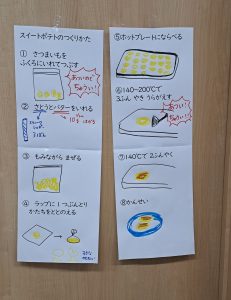 スイートポテトのつくりかた
① さつまいもを
ふくろにいれてつぶす
あついので
ちゅうい!
② さとうとバターをいれる
10g
③ もみながら まぜる
④ ラップに1つぶんとり
かたちをととのえる
⑤ホットプレートにならべる
⑥140~200℃で
3ぷん やき うらがえす
あつい!
ちゅうい!
⑦140℃で 2ふんやく
⑧かんせい